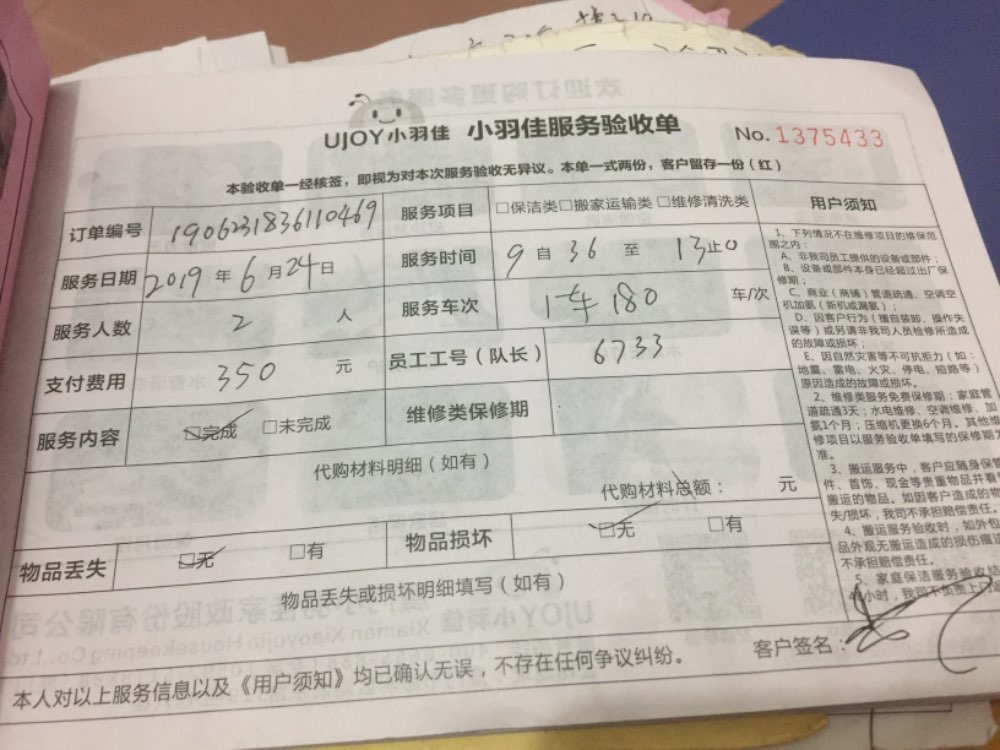 UJOY小羽佳 小羽佳服务验收单 No. 1375433
本验收单一经核签，即视为对本次服务验收无异议。本单一式两份，客户留存一份（红）
订单编号 1906231836110469 服务项目 □保洁类□搬家运输类□维修清洗类
服务日期 2019年6月24日 服务时间 9自36至13止0
服务人数 2人 服务车次 1车180 车/次
支付费用 350元 员工工号（队长） 6733
服务内容 □完成 □未完成 维修类保修期
代购材料明细（如有）
代购材料总额： 元
物品丢失 □无 □有 物品损坏 □无 □有
物品丢失或损坏明细填写（如有）
本人对以上服务信息以及《用户须知》均已确认无误，不存在任何争议纠纷。 客户签名：
用户须知
1、下列情况不在维修项目的维保范
围之内：
A、非我司员工提供的设备或部件；
B、设备或部件本身已经超过出厂保
修期；
C、商业（商铺）管道疏通、空调空
机加氨（新机或漏氨）；
D、因客户行为（擅自装卸、操作失
误等）或另请非我司人员检修所造成
的故障或损坏；
E、因自然灾害等不可抗拒力（如：
地震、雷电、火灾、停电、短路等）
原因造成的故障或损坏。
2、维修类服务免费保修期：家庭管
道疏通3天；水电维修、空调维修、加
氨1个月；压缩机更换6个月。其他维
修项目以服务验收单填写的保修期为
准。
3、搬运服务中，客户应随身保管
件、首饰、现金等贵重物品并看
搬运的物品。如因客户造成的物
失/损坏，我司不承担赔偿责任。
4、搬运服务验收时，如外包
品外观无搬运造成的损伤痕迹
不承担赔偿责任。
5、家庭保洁服务验收结
48小时，我司不负责上门